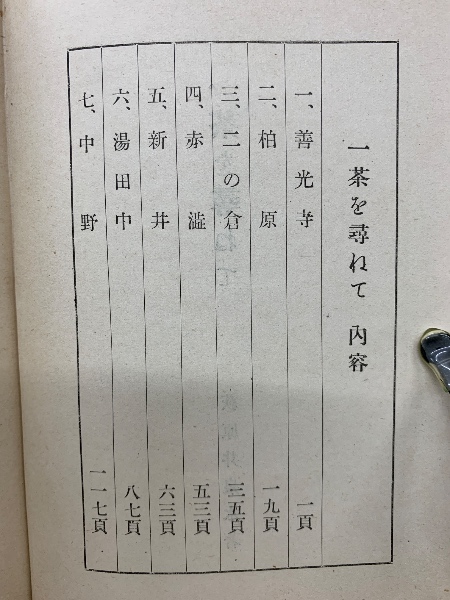 一茶を尋ねて 内容
一、善光寺 一頁
二、柏原 一九頁
三、二の倉 三五頁
四、赤澁 五三頁
五、新井 六三頁
六、湯田中 八七頁
七、中野 一一七頁